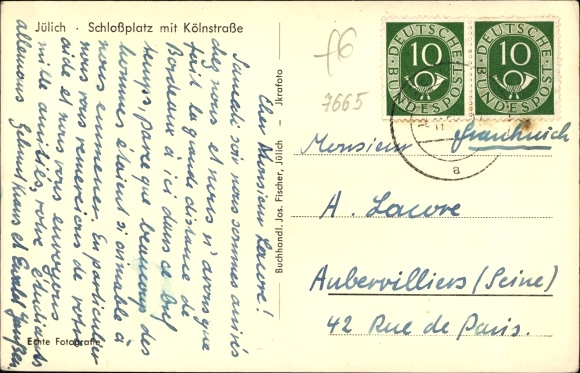 Jülich · Schloßplatz mit Kölnstraße
Cher Monsieur Lacore!
Samedi soir nous sommes arrivés
chez nous et nous n'avons que
fait la grande distance de
Bordeaux à ici dans ce bref
temps, parce que beaucoup des
hommes étaient si aimable à
nous emmener. En particulier
nous vous remercions de votre
aide et nous vous envoyons
mille amitiés, votre Etudiants
allemans Helmut Kraus et Ewald
Echte Fotografie
Buchhandl. Jos. Fischer, Jülich – Jkrafoto
f6
7665
DEUTSCHE BUNDESPOST 10
DEUTSCHE BUNDESPOST 10
a
Monsieur Frankreich
A. Lacore
Aubervilliers (Seine)
42 Rue de Paris.